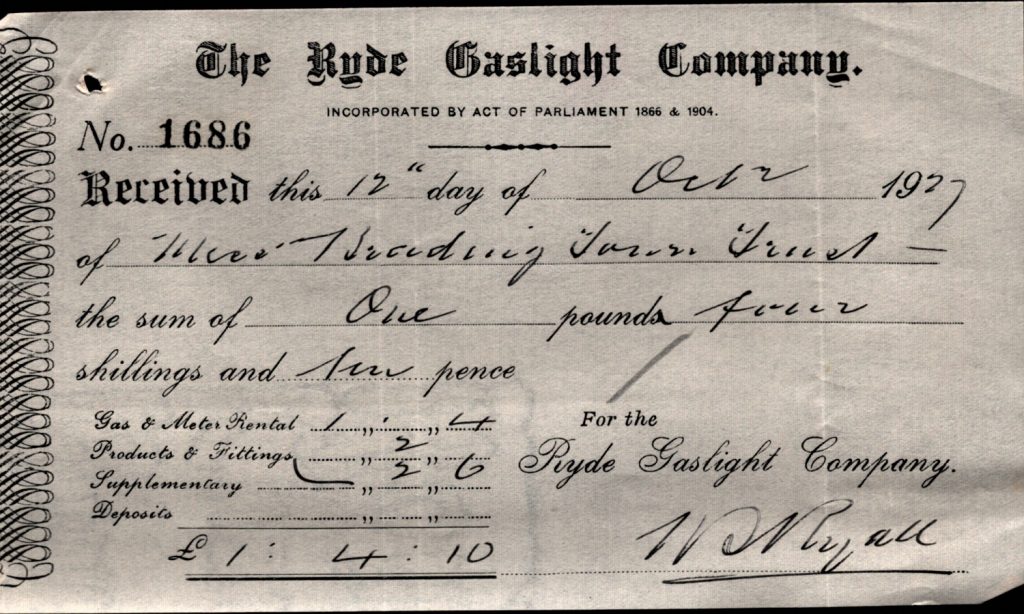 The Ryde Gaslight Company.
INCORPORATED BY ACT OF PARLIAMENT 1866 & 1904.
No. 1686
Received this 12" day of Octr 1927
of Brading Town Trust
the sum of One pounds four
shillings and ten pence
Gas & Meter Rental 1 „ 2 „ 4
Products & Fittings „ „
Supplementary „ 2 „ 6
Deposits „ „
£ 1 : 4 : 10
For the
Ryde Gaslight Company.
Ryall